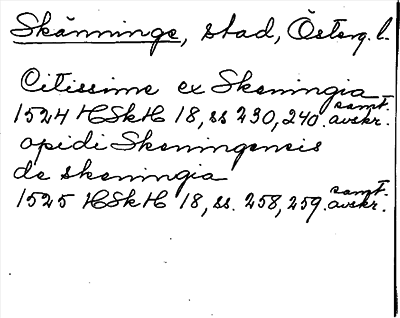 Skänninge, stad, Österg.l.
Citissime ex Skeningia
1524 HSkH 18, ss 230, 240. samt. avskr.
opidi Skeningensis
de skeningia
1525 HSkH 18, ss. 258, 259. samt. avskr.